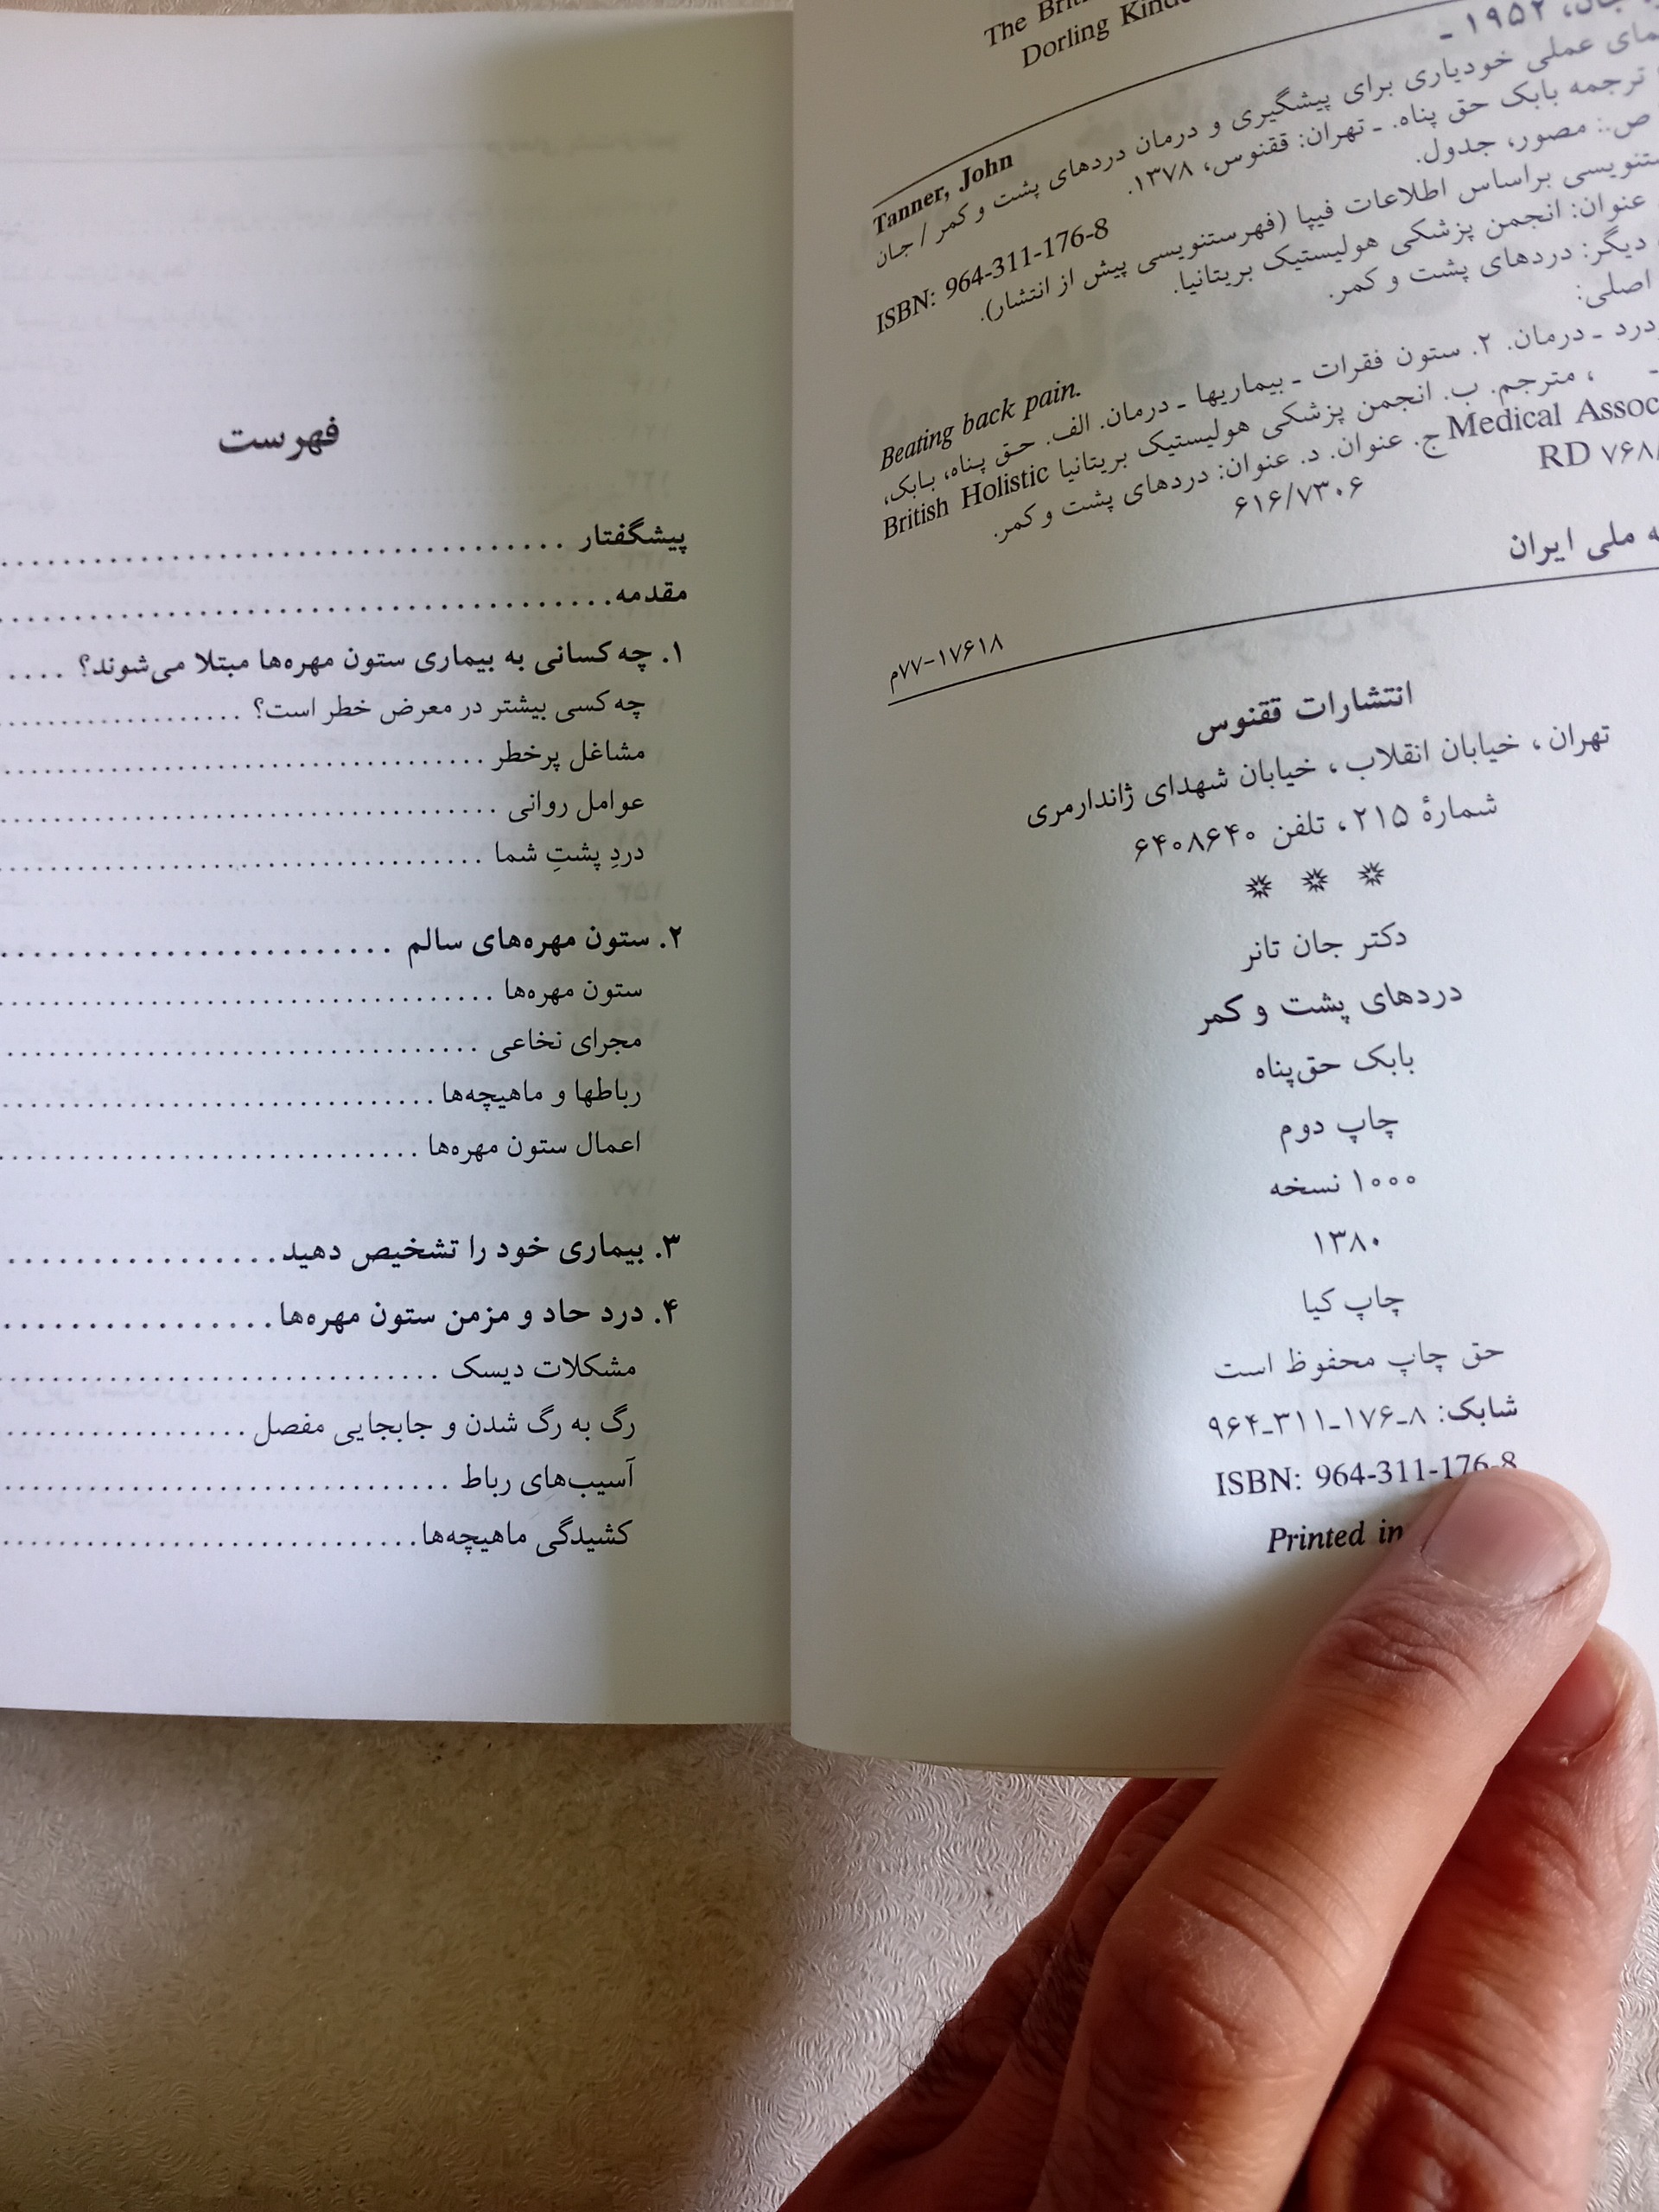 The Brit
Dorling Kinde
۱۹۵۲ ـ
Tanner, John
عملی خودیاری برای پیشگیری و درمان دردهای پشت و کمر / جان
ترجمه بابک حق پناه. ـ تهران: ققنوس، ۱۳۷۸.
ص.: مصور، جدول.
ISBN: 964-311-176-8
براساس اطلاعات فیپا (فهرستنویسی پیش از انتشار).
عنوان: انجمن پزشکی هولیستیک بریتانیا.
دیگر: دردهای پشت و کمر.
اصلی:
Beating back pain.
درد ـ درمان. ۲. ستون فقرات ـ بیماریها ـ درمان. الف. حق پناه، بابک،
ـ ، مترجم. ب. انجمن پزشکی هولیستیک بریتانیا British Holistic
Medical Assoc ج. عنوان. د. عنوان: دردهای پشت و کمر.
RD ۷۶۸/
۶۱۶/۷۳۰۶
ملی ایران
۷۷-۱۷۶۱۸م
انتشارات ققنوس
تهران، خیابان انقلاب، خیابان شهدای ژاندارمری
شمارهٔ ۲۱۵، تلفن ۶۴۰۸۶۴۰
دکتر جان تانر
دردهای پشت و کمر
بابک حق‌پناه
چاپ دوم
۱۰۰۰ نسخه
۱۳۸۰
چاپ کیا
حق چاپ محفوظ است
شابک: ۸ـ۱۷۶ـ۳۱۱ـ۹۶۴
ISBN: 964-311-176-8
Printed in
فهرست
پیشگفتار
مقدمه
۱. چه کسانی به بیماری ستون مهره‌ها مبتلا می‌شوند؟
چه کسی بیشتر در معرض خطر است؟
مشاغل پرخطر
عوامل روانی
دردِ پشتِ شما
۲. ستون مهره‌های سالم
ستون مهره‌ها
مجرای نخاعی
رباطها و ماهیچه‌ها
اعمال ستون مهره‌ها
۳. بیماری خود را تشخیص دهید
۴. درد حاد و مزمن ستون مهره‌ها
مشکلات دیسک
رگ به رگ شدن و جابجایی مفصل
آسیب‌های رباط
کشیدگی ماهیچه‌ها